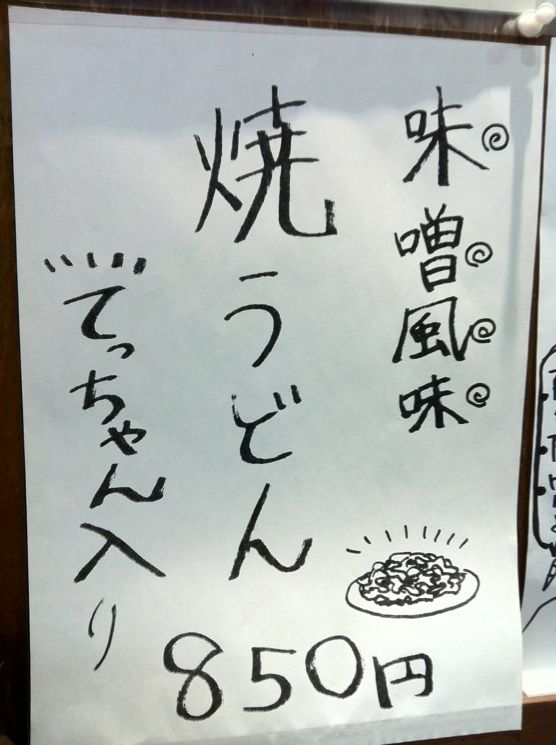 味噌風味
焼うどん
てっちゃん入り
850円